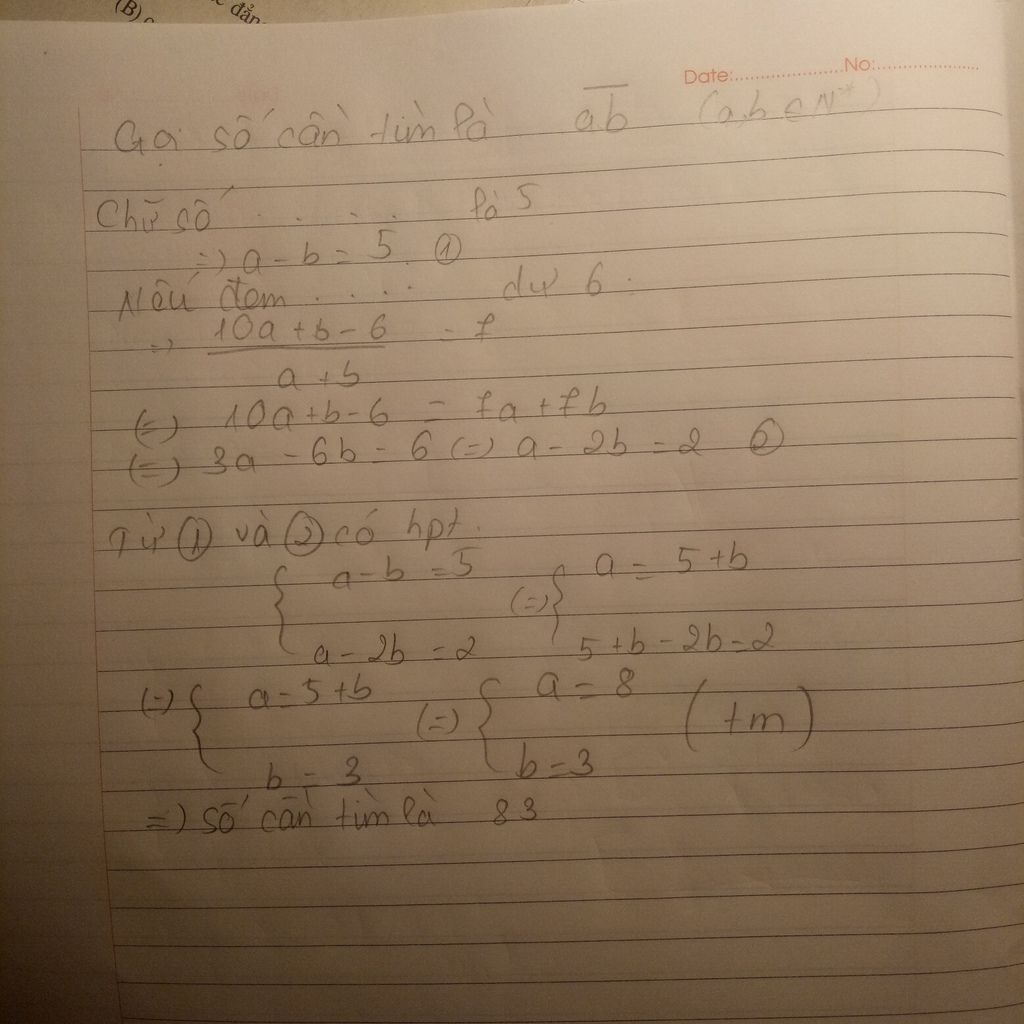 (B)
đẳn
Date:.................... No:....................
Gọi số cần tìm là ab (a,b ∈ N*)
Chữ số . . . . là 5
=) a - b = 5. ①
Nếu đem . . . . dư 6.
=> 10a + b - 6 = 7
a + b
(=) 10a + b - 6 = 7a + 7b
(=) 3a - 6b = 6 (=) a - 2b = 2 ②
Từ ① và ② có hpt.
{ a - b = 5 (=) { a = 5 + b
a - 2b = 2 5 + b - 2b = 2
(=) { a = 5 + b (=) { a = 8 (tm)
b = 3 b = 3
=) số cần tìm là 83